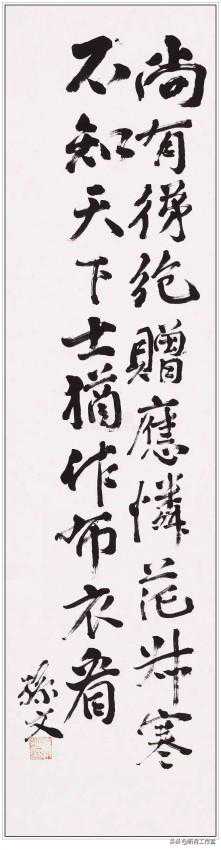 尚有綈袍贈應憐范叔寒
不知天下士猶作布衣看
孫文